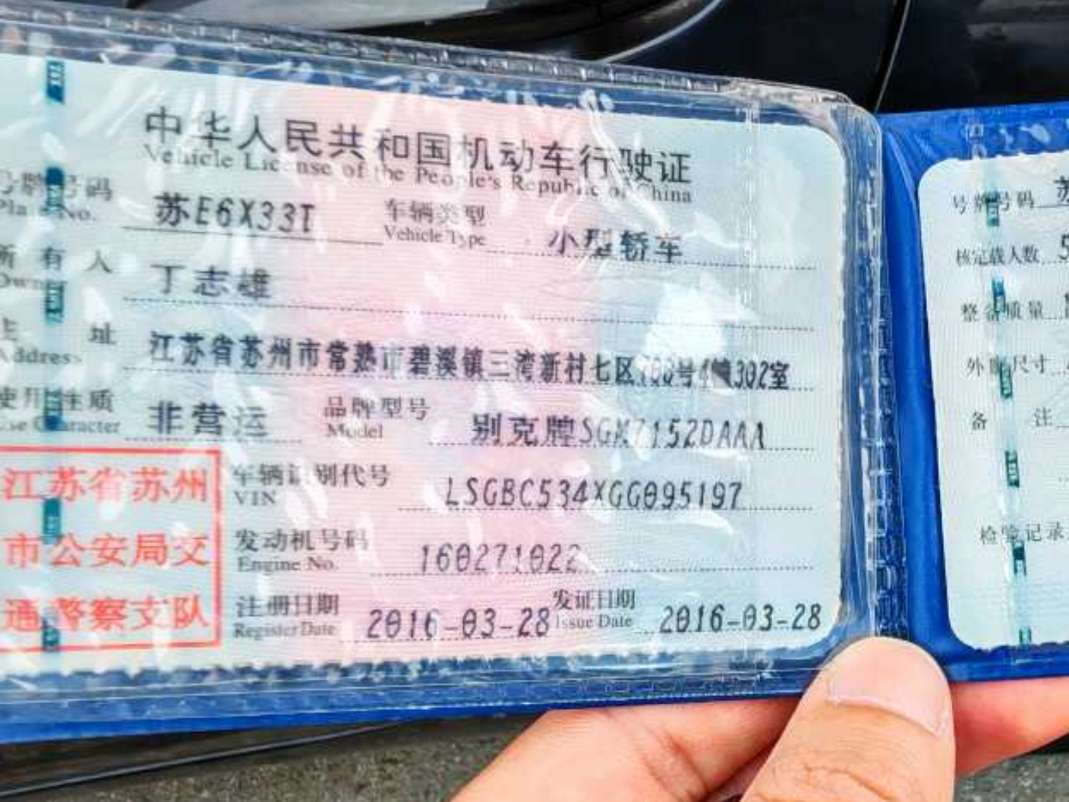 中华人民共和国机动车行驶证
Vehicle License of the People's Republic of China
号牌号码 苏E6X33T 车辆类型 小型轿车
Plate No. Vehicle Type
所有人 丁志雄
Owner
址 江苏省苏州市常熟市碧溪镇三湾新村七区 302室
Address
使用性质 非营运 品牌型号 别克牌SGM7152DAAA
Use Character Model
江苏省苏州
市公安局交
通警察支队
车辆识别代号 LSGBC534XGG095197
VIN
发动机号码 160271022
Engine No.
注册日期 2016-03-28 发证日期 2016-03-28
Register Date Issue Date
号牌号码 苏
核定载人数 5
整备质量
外廓尺寸
备 注
检验记录